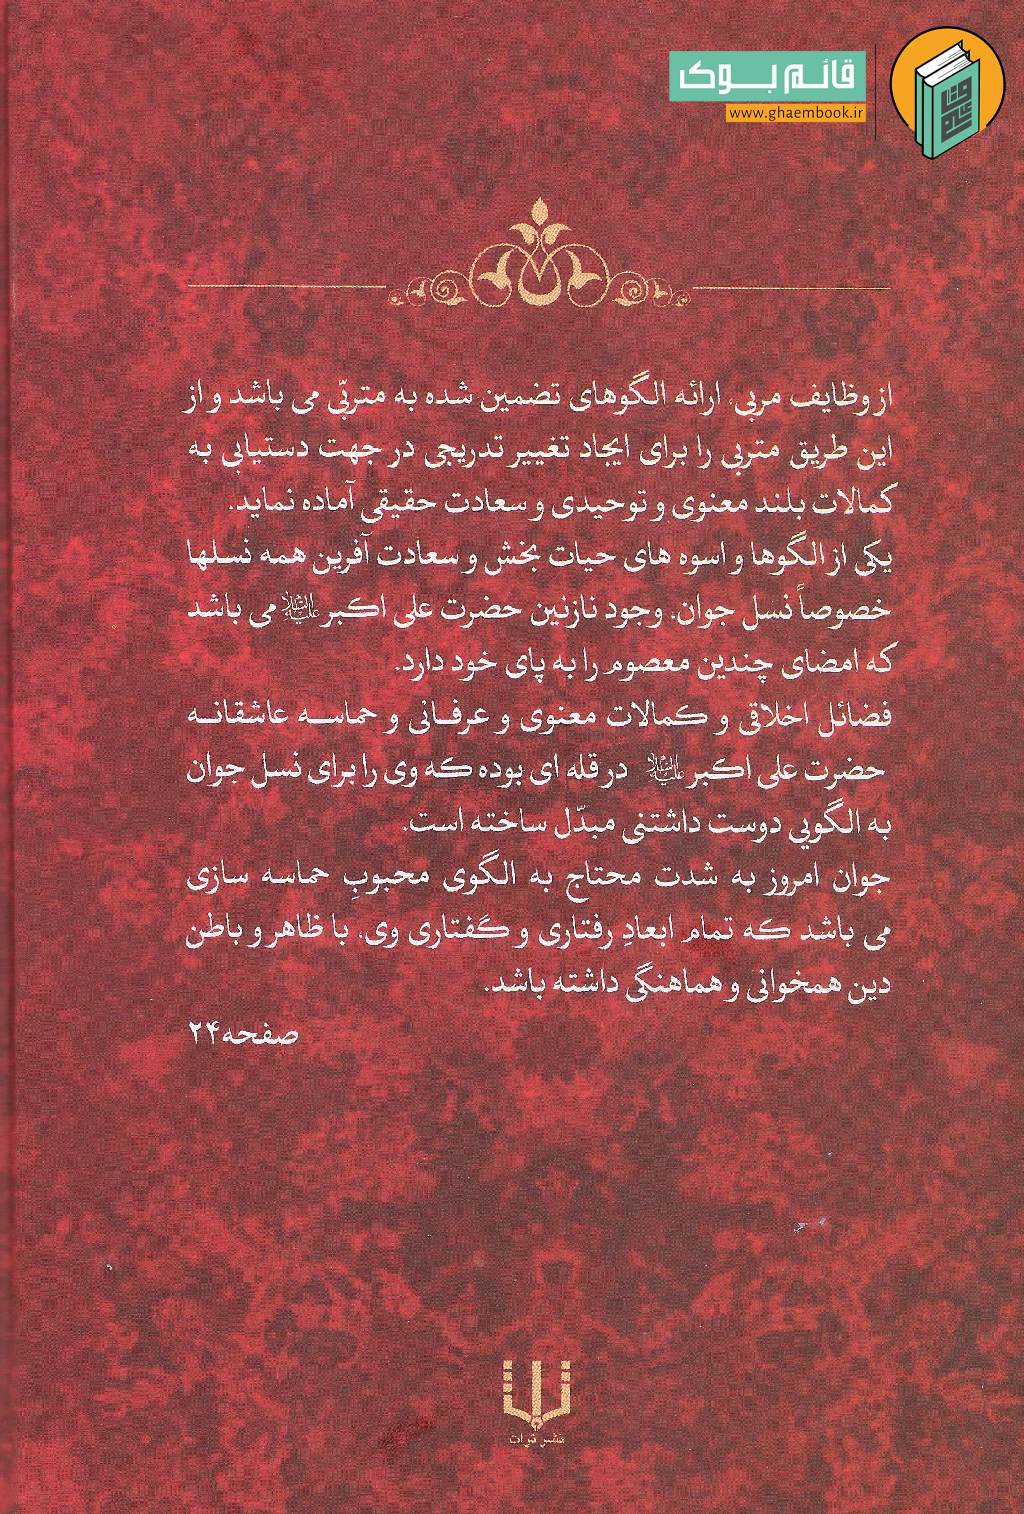 قائم بوک
www.ghaembook.ir
از وظایف مربی، ارائه الگوهای تضمین شده به متربّی می باشد و از
این طریق متربی را برای ایجاد تغییر تدریجی در جهت دستیابی به
کمالات بلند معنوی و توحیدی و سعادت حقیقی آماده نماید.
یکی از الگوها و اسوه های حیات بخش و سعادت آفرین همه نسلها
خصوصاً نسل جوان، وجود نازنین حضرت علی اکبر علیه‌السلام می باشد
که امضای چندین معصوم را به پای خود دارد.
فضائل اخلاقی و کمالات معنوی و عرفانی و حماسه عاشقانه
حضرت علی اکبر علیه‌السلام در قله ای بوده که وی را برای نسل جوان
به الگویی دوست داشتنی مبدّل ساخته است.
جوان امروز به شدت محتاج به الگوی محبوبِ حماسه سازی
می باشد که تمام ابعادِ رفتاری و گفتاری وی، با ظاهر و باطن
دین همخوانی و هماهنگی داشته باشد.
صفحه ۲۴
نشر تراث